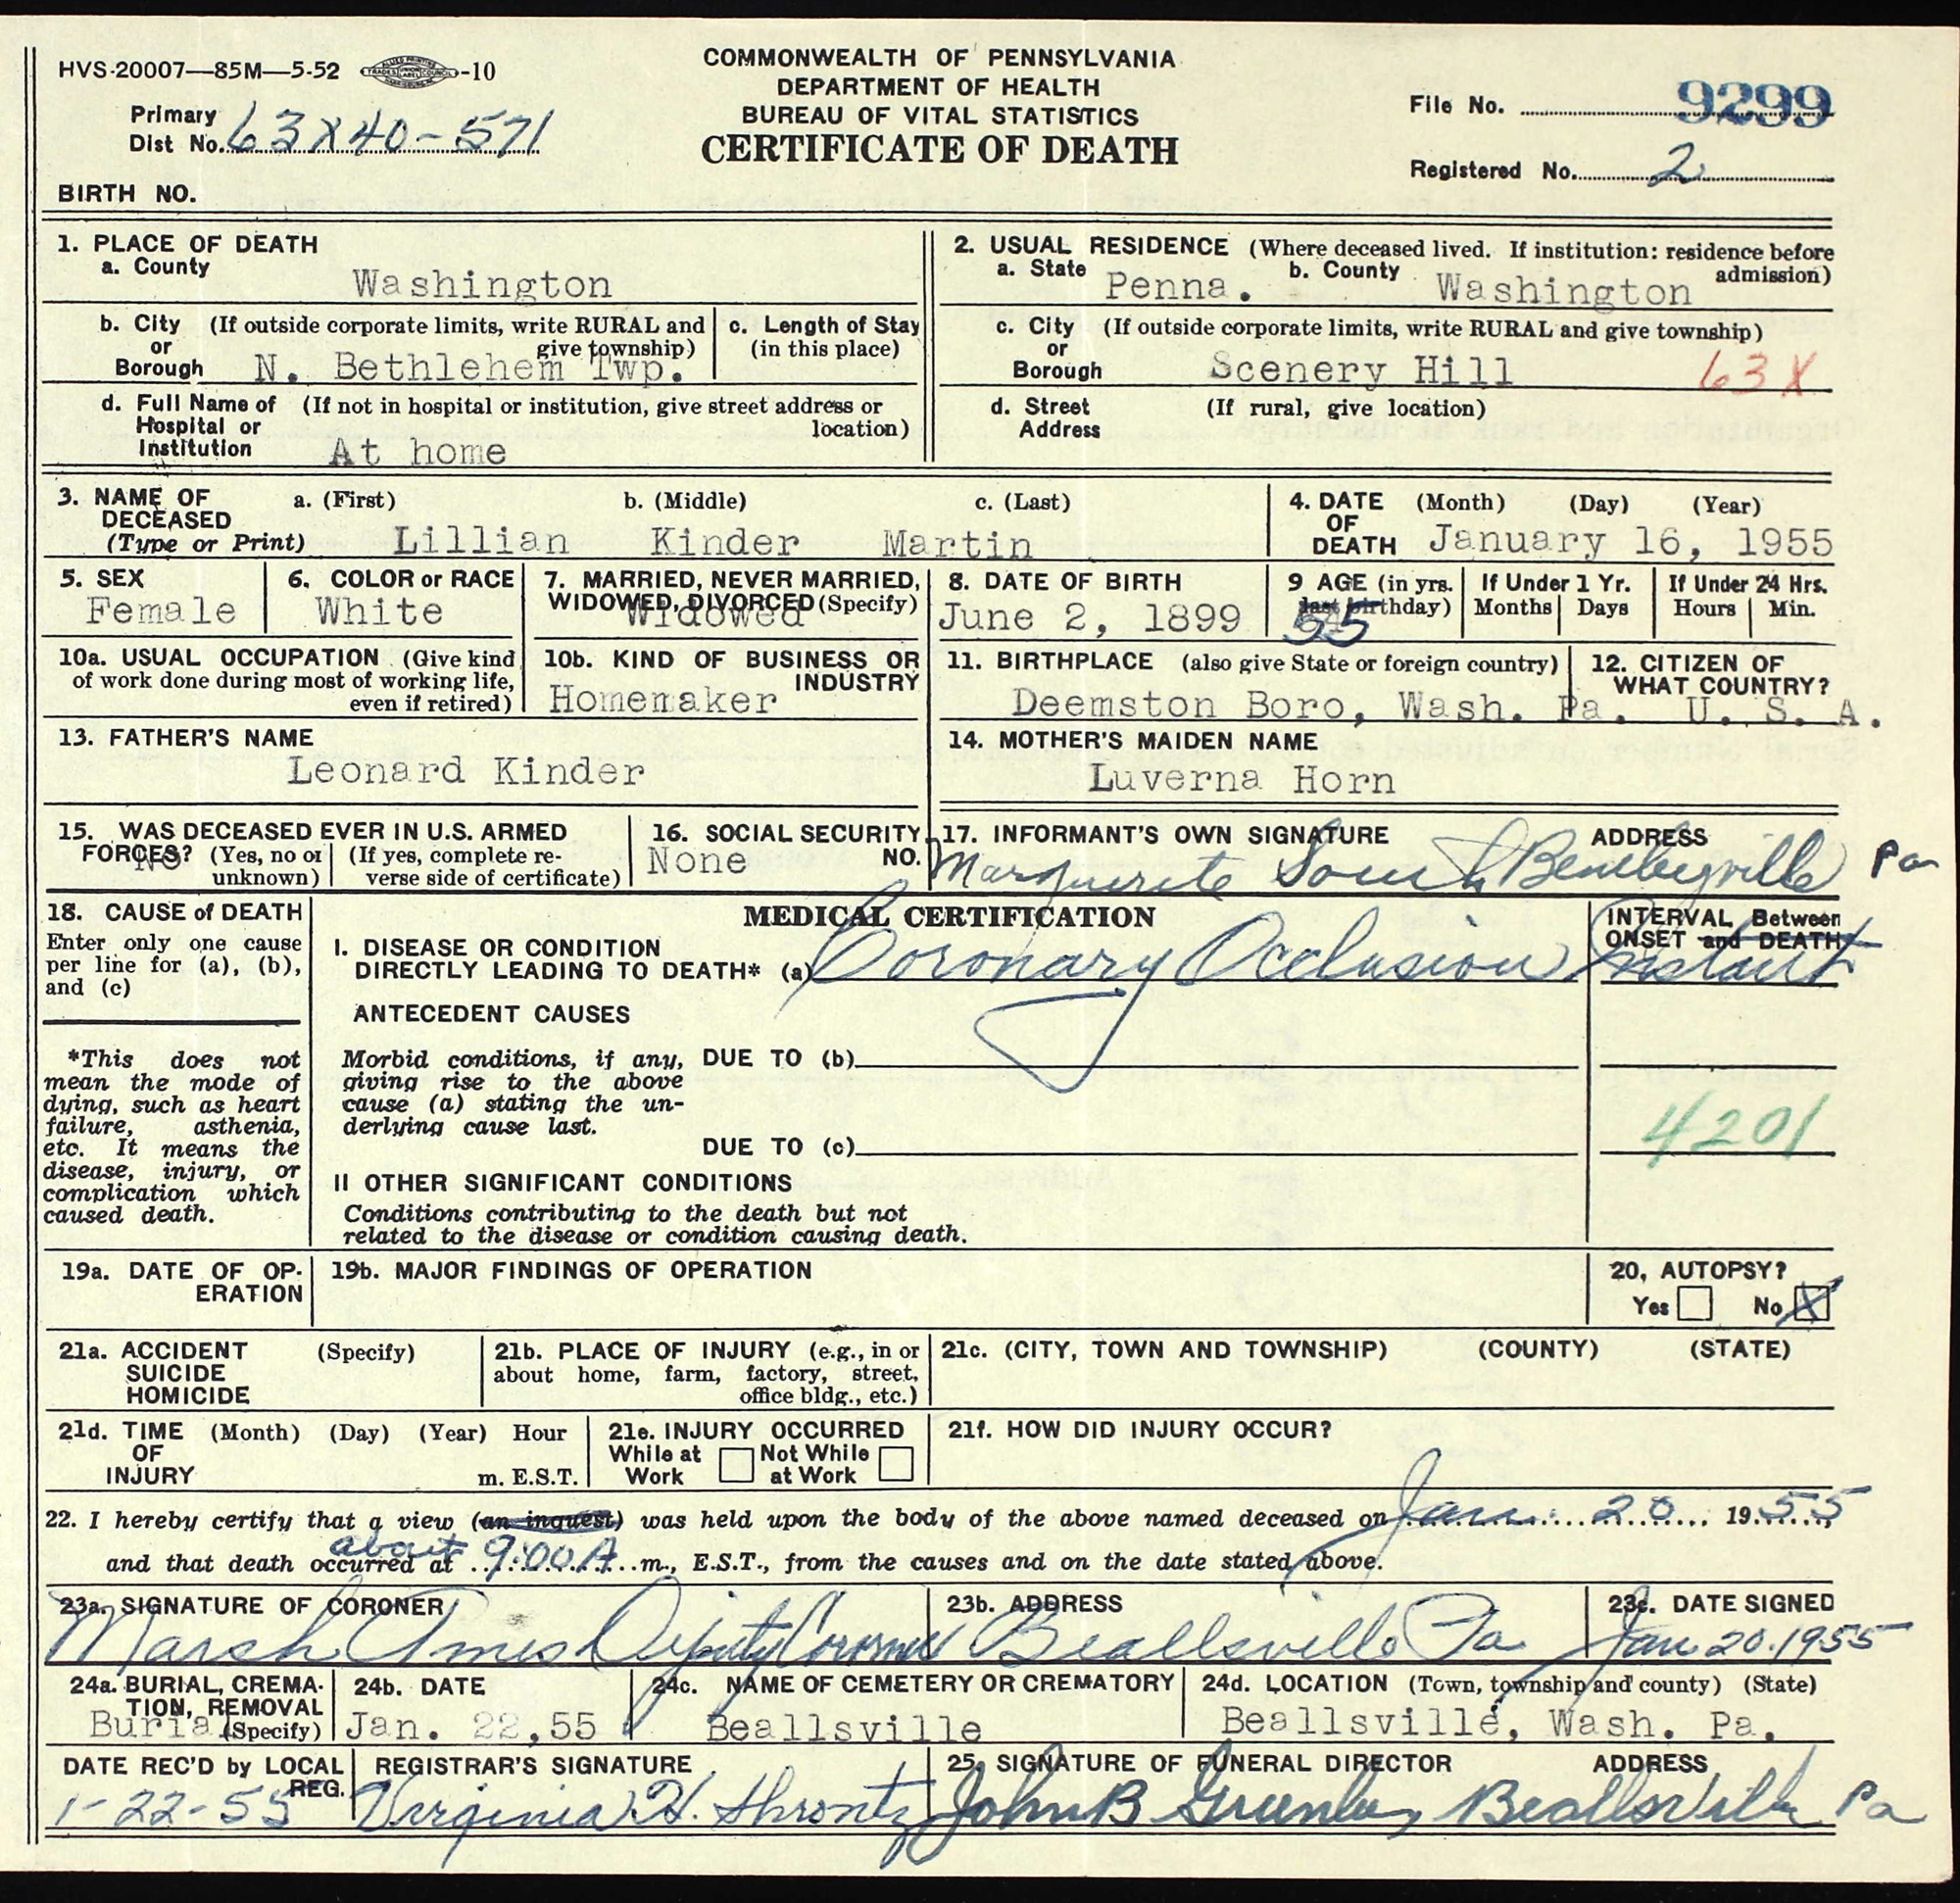 HVS-20007—85M—5-52 -10
COMMONWEALTH OF PENNSYLVANIA
DEPARTMENT OF HEALTH
BUREAU OF VITAL STATISTICS
CERTIFICATE OF DEATH
Primary
Dist No. 63X40-571
File No. 9299
Registered No. 2
BIRTH NO.
1. PLACE OF DEATH
a. County
Washington
b. City (If outside corporate limits, write RURAL and
or give township)
Borough N. Bethlehem Twp.
c. Length of Stay
(in this place)
d. Full Name of (If not in hospital or institution, give street address or
Hospital or location)
Institution At home
2. USUAL RESIDENCE (Where deceased lived. If institution: residence before
admission)
a. State Penna. b. County Washington
c. City (If outside corporate limits, write RURAL and give township)
or
Borough Scenery Hill 63X
d. Street (If rural, give location)
Address
3. NAME OF a. (First) b. (Middle) c. (Last)
DECEASED
(Type or Print) Lillian Kinder Martin
4. DATE (Month) (Day) (Year)
OF
DEATH January 16, 1955
5. SEX
Female
6. COLOR or RACE
White
7. MARRIED, NEVER MARRIED,
WIDOWED, DIVORCED (Specify)
Widowed
8. DATE OF BIRTH
June 2, 1899
9 AGE (in yrs.
last birthday)
55
If Under 1 Yr.
Months Days
If Under 24 Hrs.
Hours Min.
10a. USUAL OCCUPATION (Give kind
of work done during most of working life,
even if retired)
10b. KIND OF BUSINESS OR
INDUSTRY
Homemaker
11. BIRTHPLACE (also give State or foreign country)
Deemston Boro, Wash. Pa.
12. CITIZEN OF
WHAT COUNTRY?
U. S. A.
13. FATHER'S NAME
Leonard Kinder
14. MOTHER'S MAIDEN NAME
Luverna Horn
15. WAS DECEASED EVER IN U.S. ARMED
FORCES? (Yes, no or (If yes, complete re-
unknown) verse side of certificate)
No
16. SOCIAL SECURITY
NO.
None
17. INFORMANT'S OWN SIGNATURE ADDRESS
Marguerite Pa
18. CAUSE of DEATH
Enter only one cause
per line for (a), (b),
and (c)
*This does not
mean the mode of
dying, such as heart
failure, asthenia,
etc. It means the
disease, injury, or
complication which
caused death.
MEDICAL CERTIFICATION
I. DISEASE OR CONDITION
DIRECTLY LEADING TO DEATH* (a) Coronary Occlusion
ANTECEDENT CAUSES
Morbid conditions, if any, DUE TO (b)
giving rise to the above
cause (a) stating the un-
derlying cause last.
DUE TO (c)
II OTHER SIGNIFICANT CONDITIONS
Conditions contributing to the death but not
related to the disease or condition causing death.
INTERVAL Between
ONSET and DEATH
Instant
4201
19a. DATE OF OP-
ERATION
19b. MAJOR FINDINGS OF OPERATION
20, AUTOPSY?
Yes No X
21a. ACCIDENT (Specify)
SUICIDE
HOMICIDE
21b. PLACE OF INJURY (e.g., in or
about home, farm, factory, street,
office bldg., etc.)
21c. (CITY, TOWN AND TOWNSHIP) (COUNTY) (STATE)
21d. TIME (Month) (Day) (Year) Hour
OF
INJURY m. E.S.T.
21e. INJURY OCCURRED
While at Not While
Work at Work
21f. HOW DID INJURY OCCUR?
22. I hereby certify that a view (an inquest) was held upon the body of the above named deceased on Jan. 20 1955,
and that death occurred at about 9:00 A.m., E.S.T., from the causes and on the date stated above.
23a. SIGNATURE OF CORONER
Marsh Ames Deputy Coroner
23b. ADDRESS
Beallsville Pa
23c. DATE SIGNED
Jan 20.1955
24a. BURIAL, CREMA-
TION, REMOVAL
(Specify)
Burial
24b. DATE
Jan. 22,55
24c. NAME OF CEMETERY OR CREMATORY
Beallsville
24d. LOCATION (Town, township and county) (State)
Beallsville, Wash. Pa.
DATE REC'D by LOCAL
REG.
1-22-55
REGISTRAR'S SIGNATURE
Virginia H. Shrontz
25. SIGNATURE OF FUNERAL DIRECTOR ADDRESS
John B Greenlee Beallsville Pa